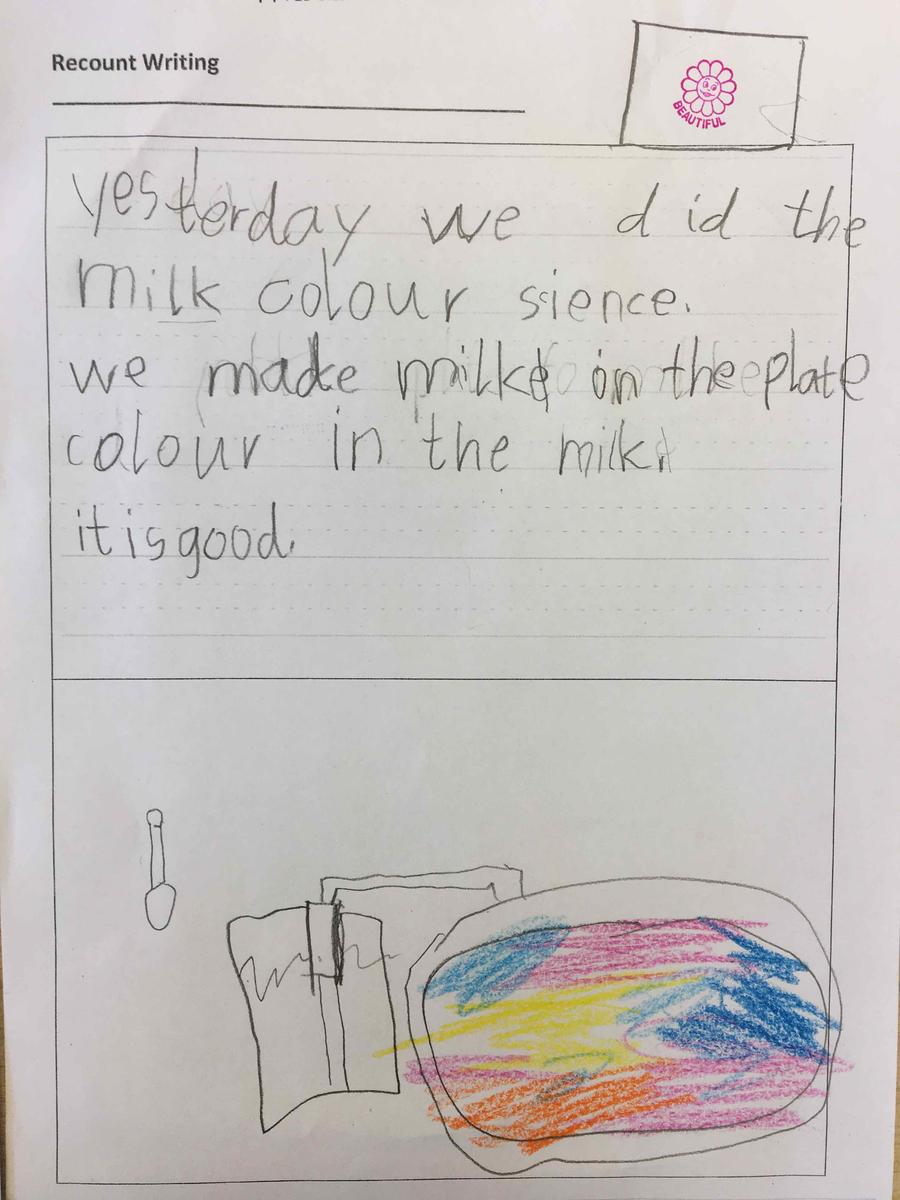 Recount Writing
BEAUTIFUL
yesterday we did the
milk colour sience.
we made milk in the plate
colour in the milk.
it is good.